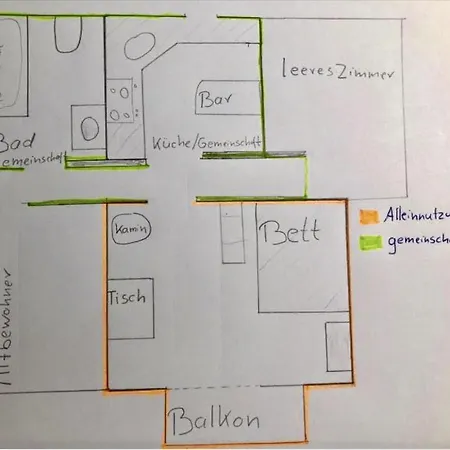 leeres Zimmer
Bar
Bad
emeinschaft
Küche/Gemeinschaft
Alleinnutzu
gemeinscha
Kamin
Bett
Tisch
Mitbewohner
Balkon